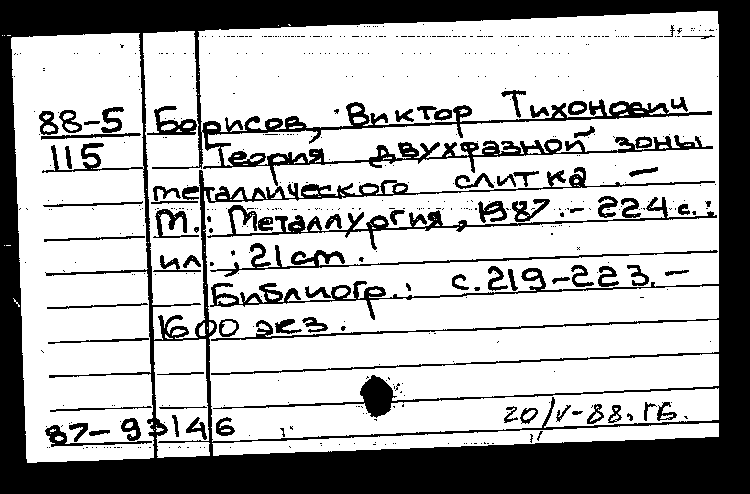 88-5 Борисов, Виктор Тихонович
115 Теория двухфазной зоны
металлического слитка. —
М.: Металлургия, 1987. - 224 с.:
ил.; 21 cm.
Библиогр.: с. 219-223. —
1600 экз.
87-93146 20/V-88. ГБ.